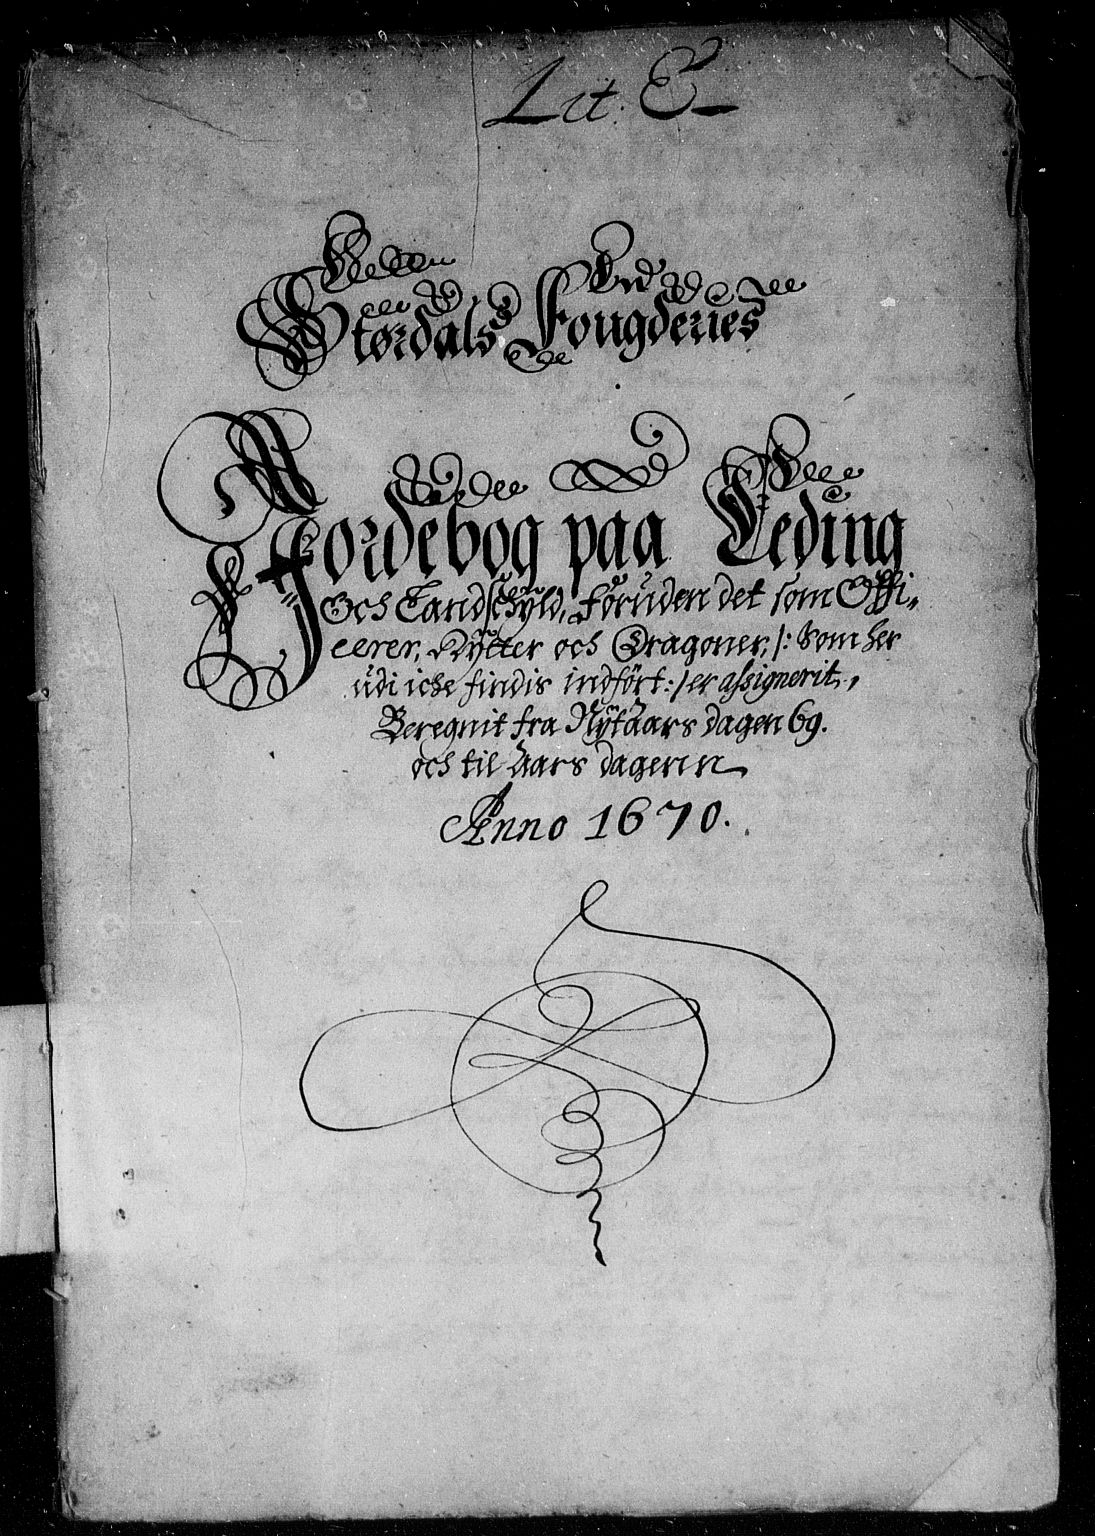 Lit: E
Størdals Fougderies
Jordebog paa Leding
Och Landschyld, foruden det som Offi,,
cerer, Rÿtter och Dragoner, /: som her
udi iche findis indført :/ er assignerit,
Beregnit fra Nÿtaars dagen 69.
och til Aars dagenn
Anno 1670.